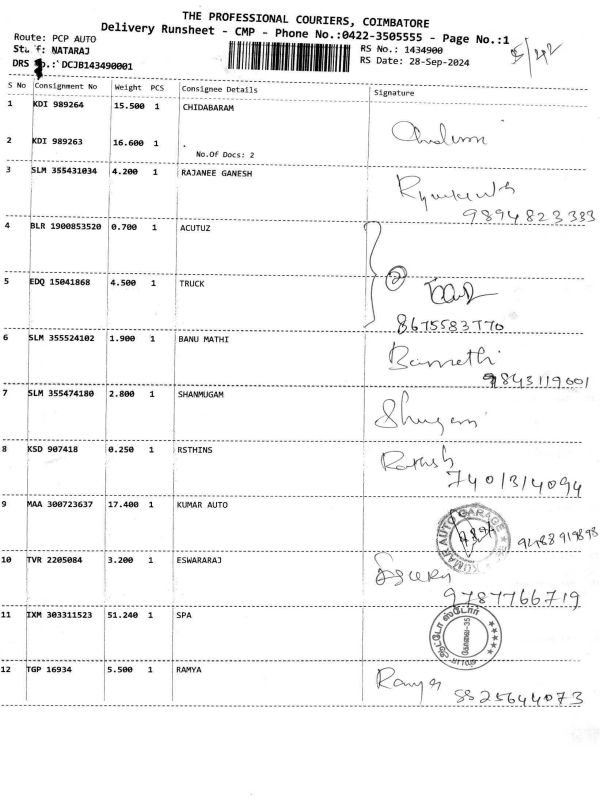 THE PROFESSIONAL COURIERS, COIMBATORE
Delivery Runsheet - CMP - Phone No.:0422-3505555 - Page No.:1
Route: PCP AUTO RS No.: 1434900
NATARAJ RS Date: 28-Sep-2024
DRS DCJB143490001
S No Consignment No Weight PCS Consignee Details Signature
1 KDI 989264 15.500 1 CHIDABARAM
2 KDI 989263 16.600 1 .
No.Of Docs: 2
3 SLM 355431034 4.200 1 RAJANEE GANESH
9894823333
4 BLR 1900853520 0.700 1 ACUTUZ
2
5 EDQ 15041868 4.500 1 TRUCK
8675583770
6 SLM 355524102 1.900 1 BANU MATHI
9843119001
7 SLM 355474180 2.800 1 SHANMUGAM
8 KSD 907418 0.250 1 RSTHINS
7401314094
9 MAA 300723637 17.400 1 KUMAR AUTO
KUMAR AUTO GARAGE
10 TVR 2205084 3.200 1 ESWARARAJ
9787766719
11 IXM 303311523 51.240 1 SPA
ஆட்டோ ஸ்டோர்
கோவை-35
12 TGP 16934 5.500 1 RAMYA
Ramya
8825644073